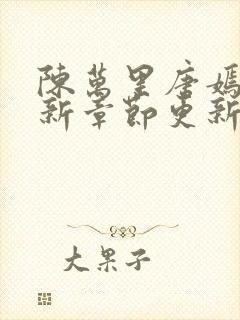 陳萬里唐嫣
新章節更新
大果子